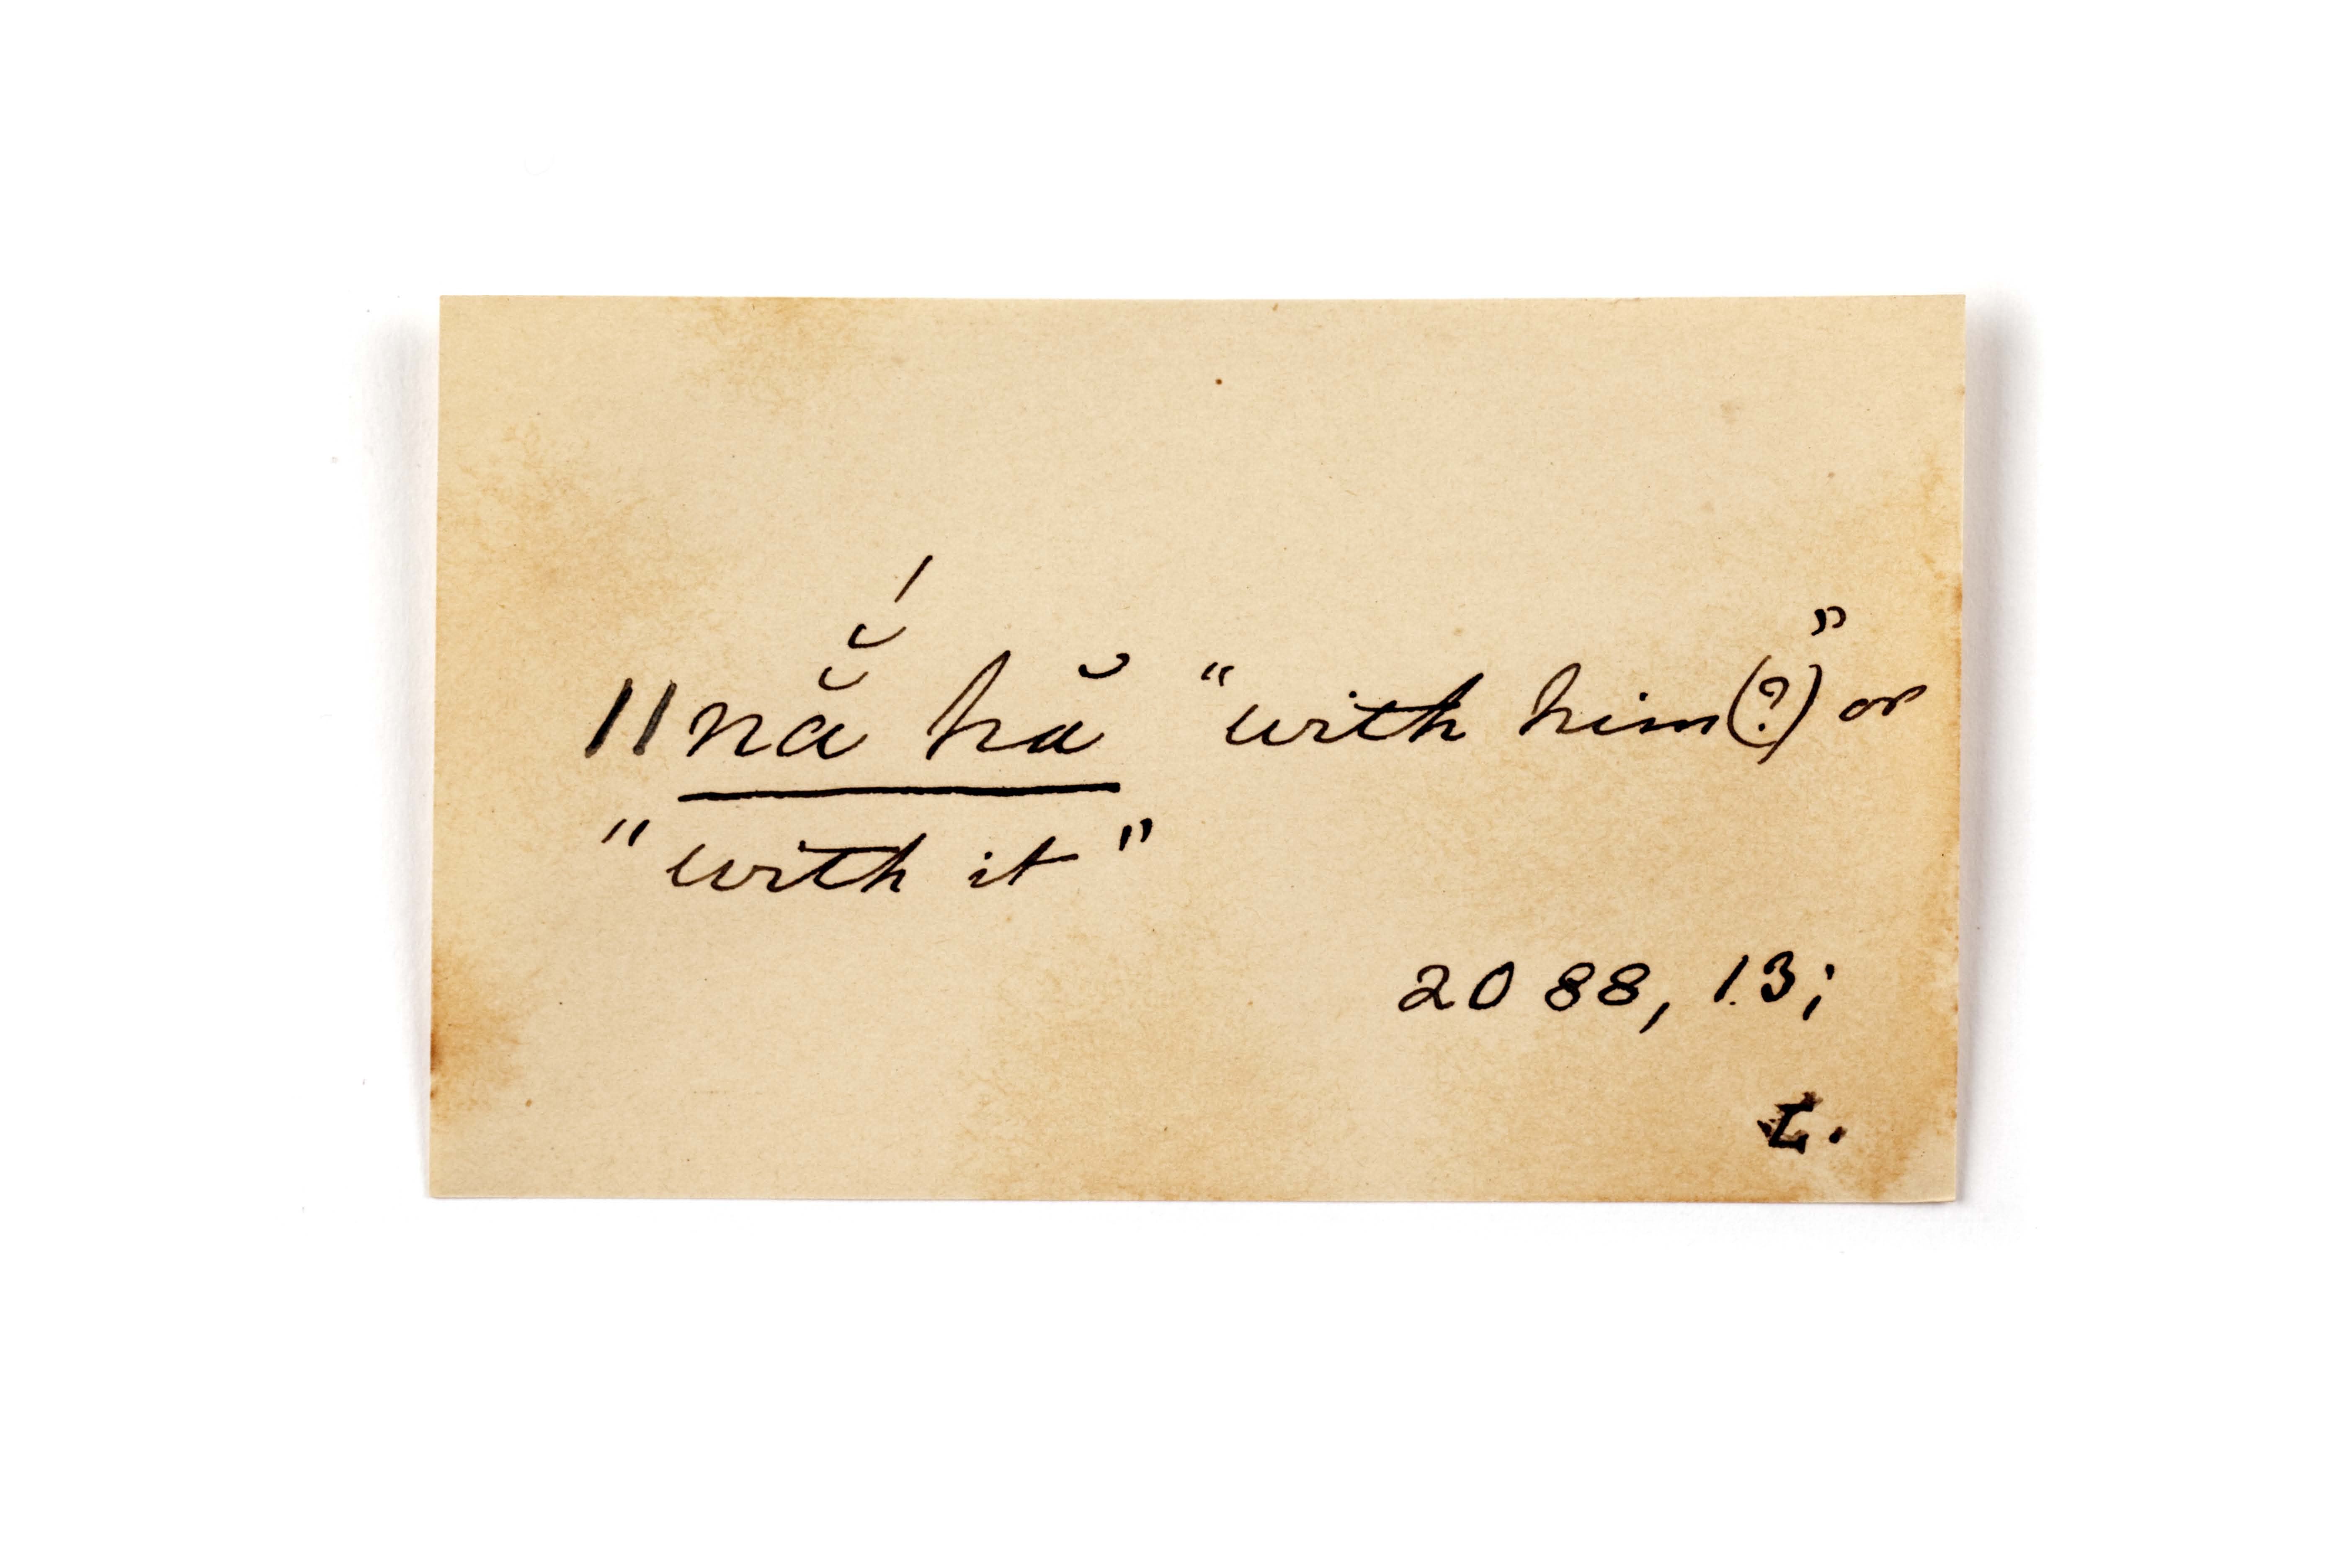 ||nă̆́ hă "with him(?)" or
"with it"
2088, 13;
L.